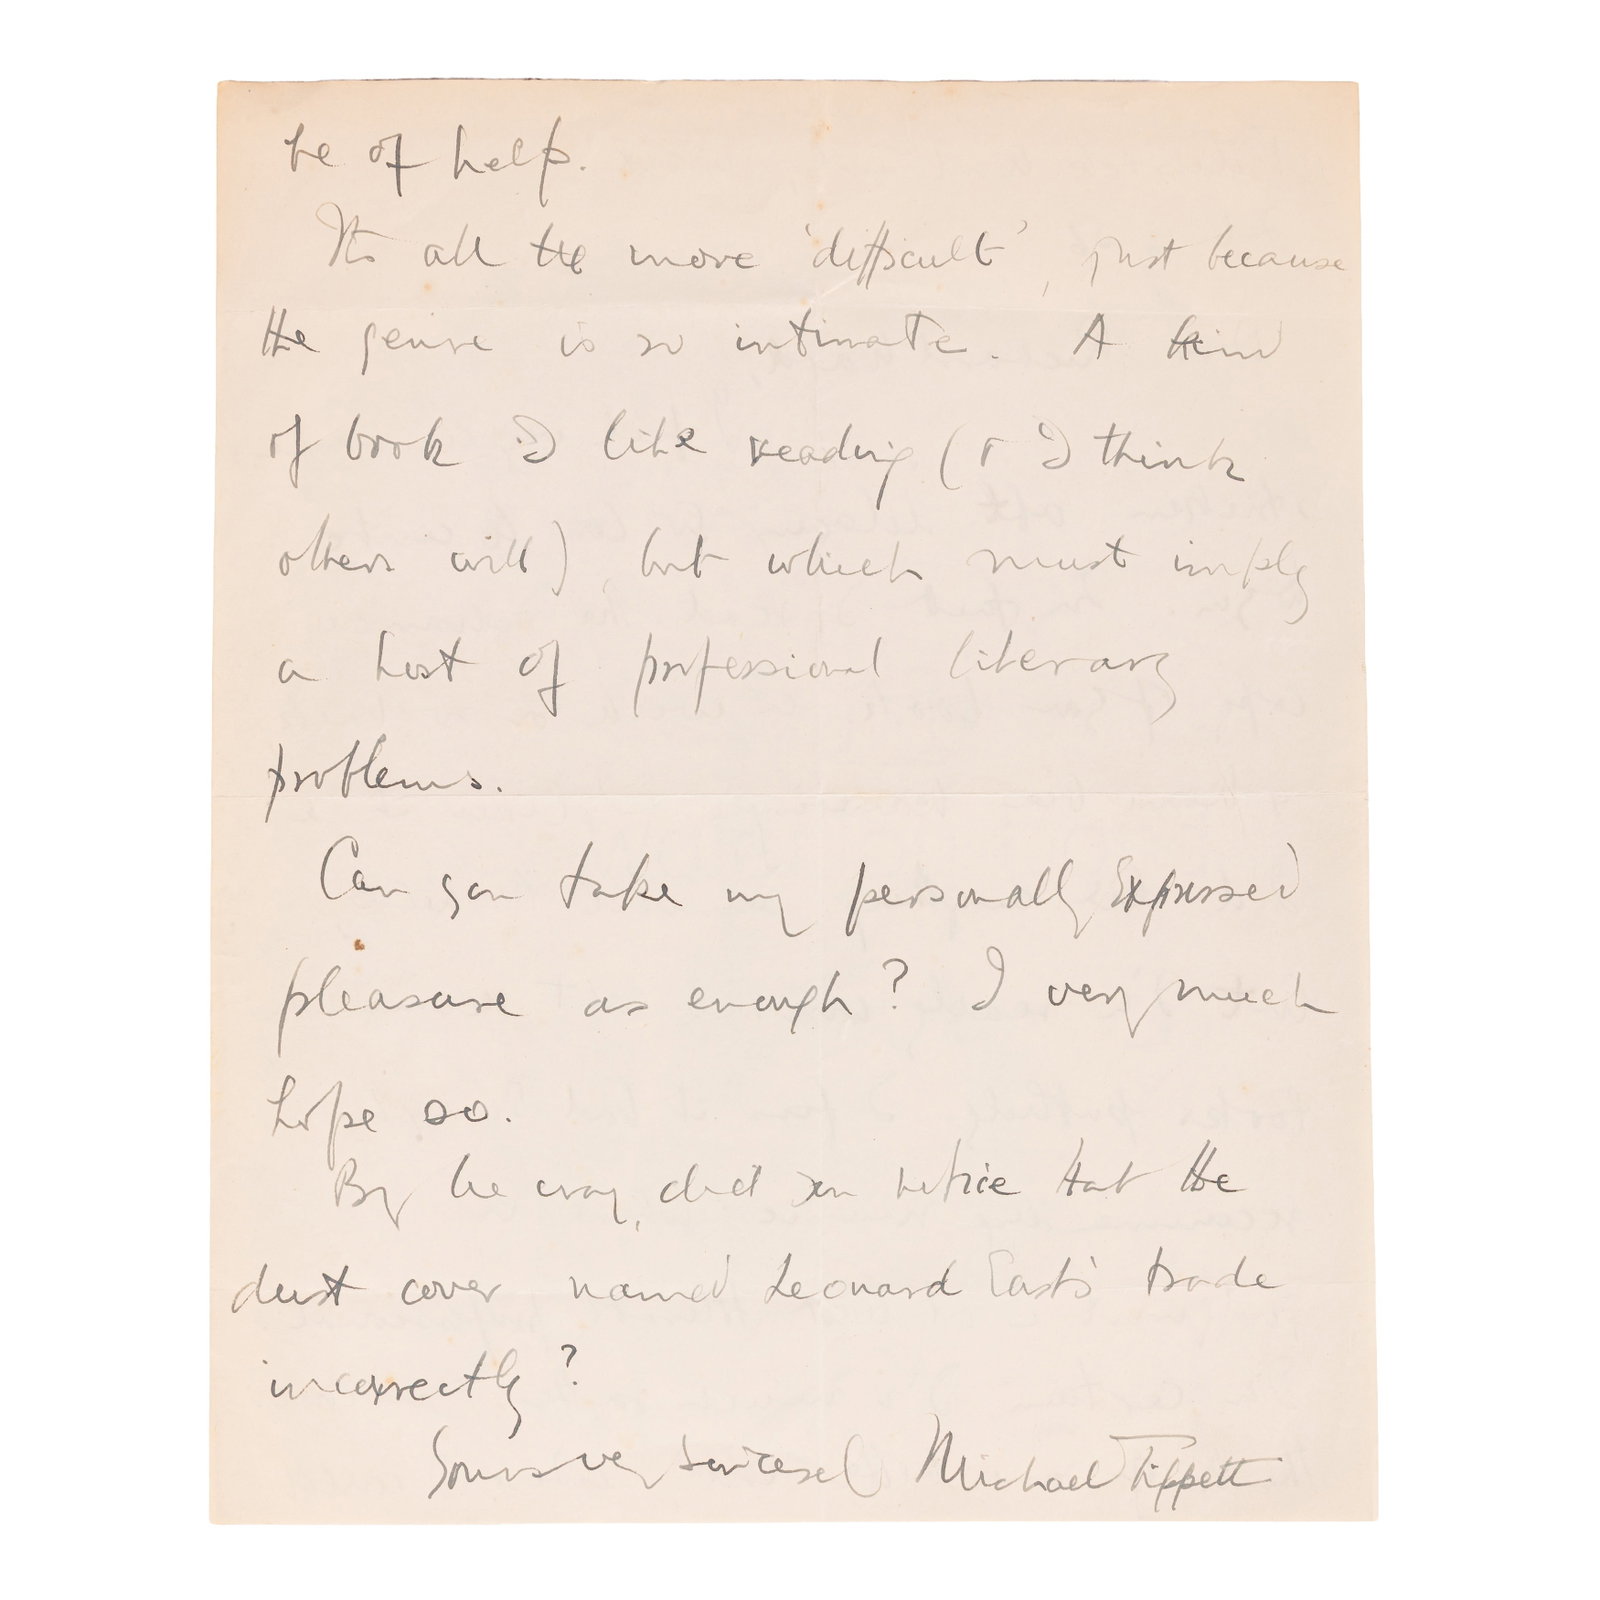 be of help.
It's all the more 'difficult', just because
the genre is so intimate. A kind
of book I like reading (& I think
others will), but which must imply
a host of professional literary
problems.
Can you take my personally expressed
pleasure as enough? I very much
hope so.
By the way, did you notice that the
dust cover named Leonard East's trade
incorrectly?
Yours very sincerely Michael Tippett